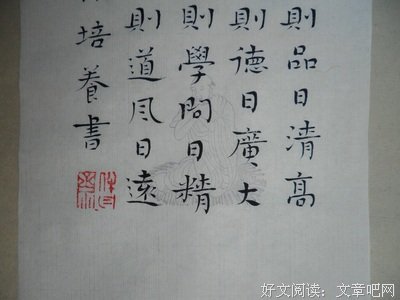 則品日清高
則德日廣大
則學問日精
則道风日遠
培養書
好文阅读：文章吧网